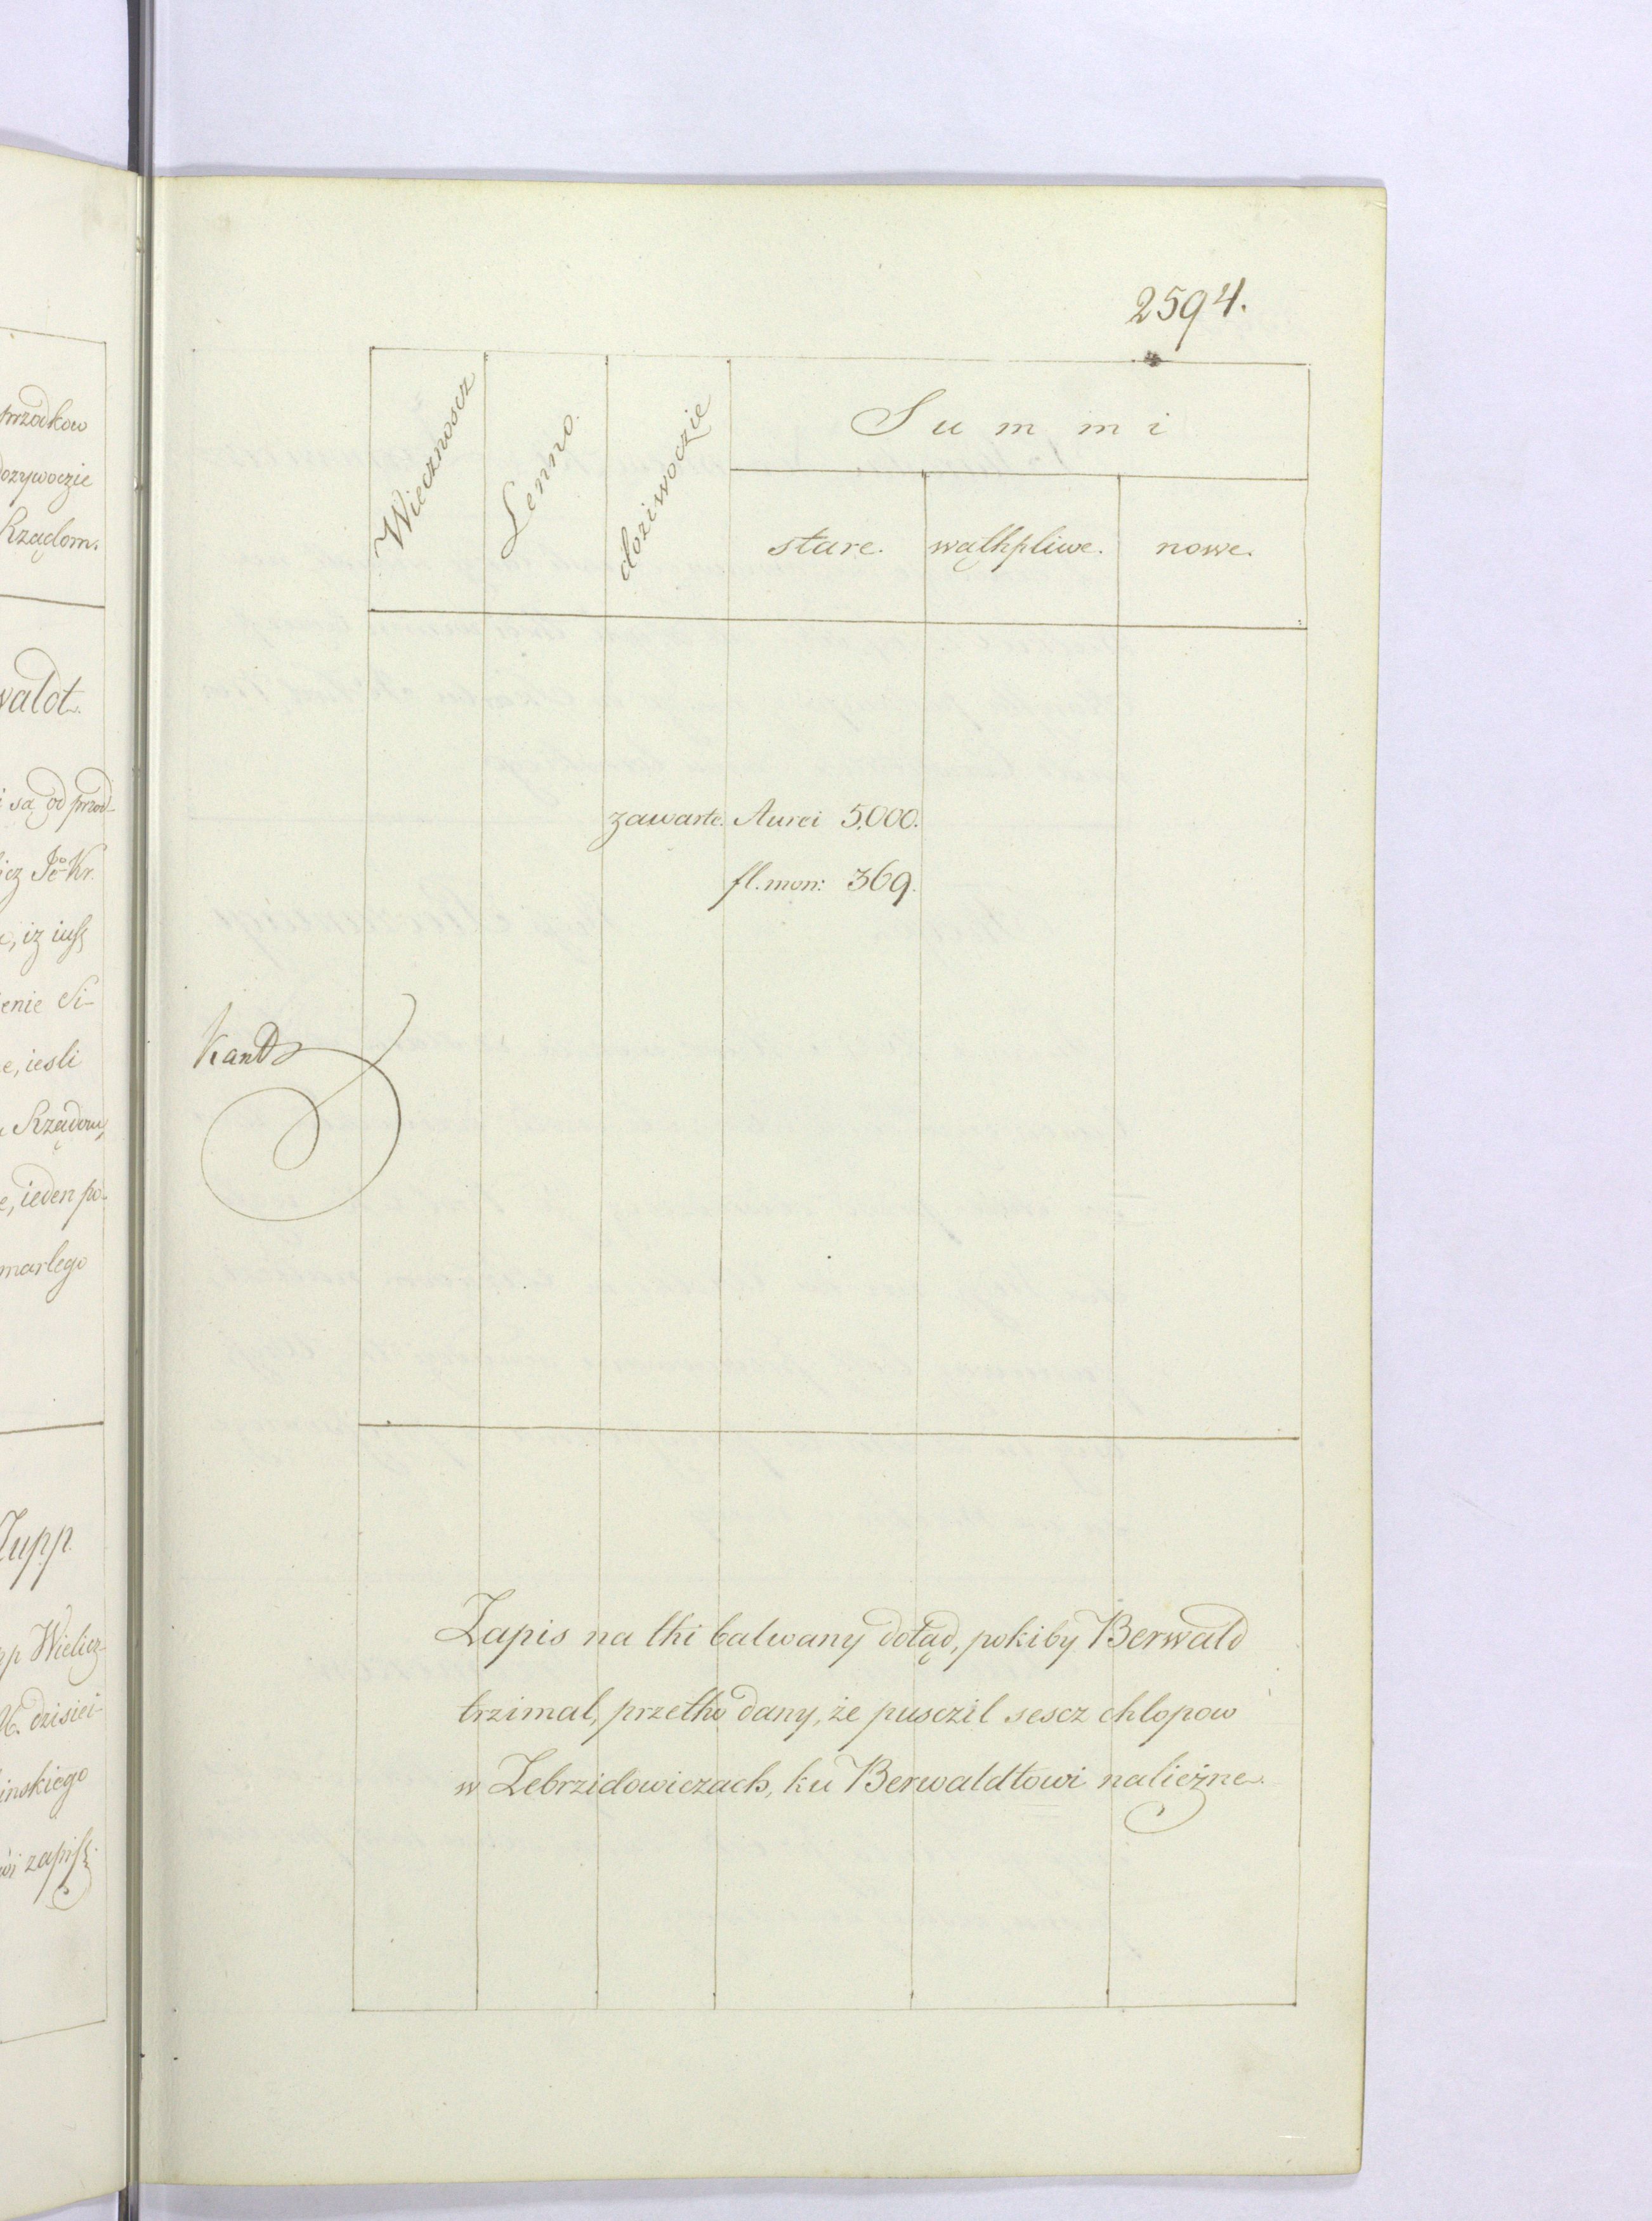 przodkow
dozywoczie
Rządom.
waldt.
i są od przod-
icz Jeo Kr.
e, iz iusz
enie Si-
e, iesli
Rządow,
e, ieden po-
marlego
Zupp.
pp Wielicz-
M. dzisiei-
inskiego
wi zapisz.
2594.
Wiecznoscz
Lenno.
doziwoczie
Summi
stare.
wąthpliwe.
nowe.
zawarte. Aurei 5,000.
fl. mon: 369.
Zapis na thi balwany dotąd, pokiby Berwald
trzimal, przetho dany, że pusczil sescz chlopow
w Zebrzidowiczach, ku Berwaldtowi nalieżne.